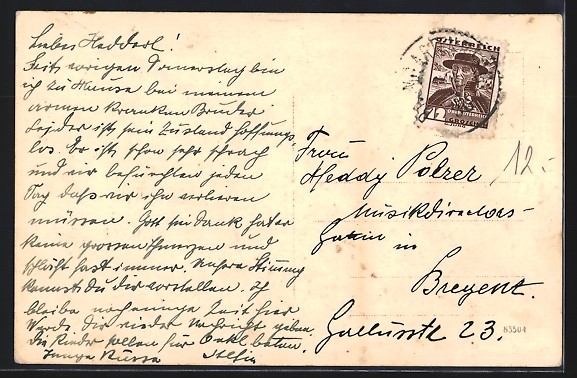 Liebes Hedderl!
Seit vorigen Donnerstag bin
ich zu Hause bei meinem
armen kranken Bruder.
Leider ist sein Zustand hoffnungs
los. Er ist schon sehr schwach
und wir befürchten jeden
Tag dass wir ihn verlieren
müssen. Gott sei dank hat er
keine grossen Schmerzen und
schläft fast immer. Unsere Stimmung
kannst Du dir vorstellen. Ich
bleibe noch einige Zeit hier
Werde Dir wieder Nachricht geben.
Die Kinder sollen für Onkel beten.
Küsse
ÖSTERREICH
12 GROSCHEN
12.-
Frau
Heddy Polzer
Musikdirectors-
Gattin in
Bregenz.
Gallusstr 23.
83504